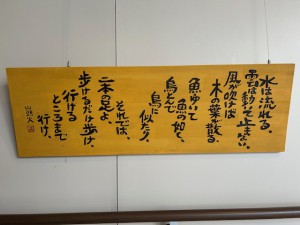 水は流れる、
雲は動いて止まない、
風が吹けば
木の葉が散る、
魚ゆいて
魚の如く、
鳥とんで
鳥に似たり、
それでは、
二本の足よ、
歩けるだけ歩け、
行ける
ところまで
行け、
山頭火